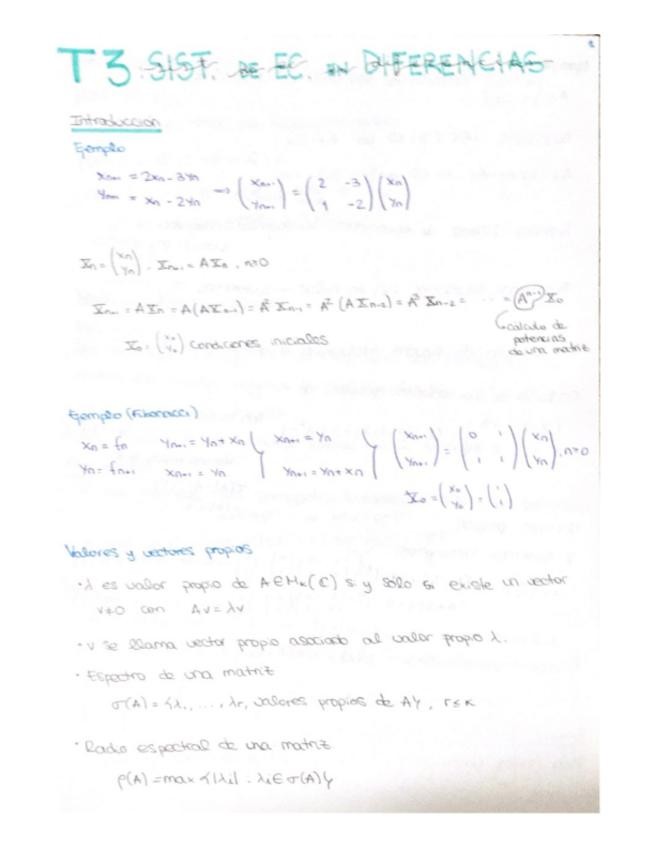 2
T3 SIST. DE EC. EN DIFERENCIAS
Introducción
Ejemplo
xₙ₊₁ = 2xₙ - 3yₙ
yₙ₊₁ = xₙ - 2yₙ ⇒ (xₙ₊₁ yₙ₊₁) = (2 -3 1 -2)(xₙ yₙ)
Xₙ = (xₙ yₙ) . Xₙ₊₁ = AXₙ, n≥0
Xₙ₊₁ = AXₙ = A(AXₙ₋₁) = A² Xₙ₋₁ = A² (AXₙ₋₂) = A³ Xₙ₋₂ = ... = Aⁿ⁺¹ X₀
calculo de
potencias
de una matriz
X₀ = (x₀ y₀) condiciones iniciales
Ejemplo (Fibonacci)
xₙ = fₙ yₙ₊₁ = yₙ + xₙ } xₙ₊₁ = yₙ } (xₙ₊₁ yₙ₊₁) = (0 1 1 1)(xₙ yₙ), n≥0
yₙ = fₙ₊₁ xₙ₊₁ = yₙ yₙ₊₁ = yₙ + xₙ
X₀ = (x₀ y₀) = (1 1)
Valores y vectores propios
· λ es valor propio de A∈Mₖ(C) si y sólo si existe un vector
v≠0 con Av = λv
· v se llama vector propio asociado al valor propio λ.
· Espectro de una matriz
σ(A) = {λ₁, ..., λr, valores propios de A}, r≤k
· Radio espectral de una matriz
ρ(A) = max {|λᵢ| : λᵢ ∈ σ(A)}